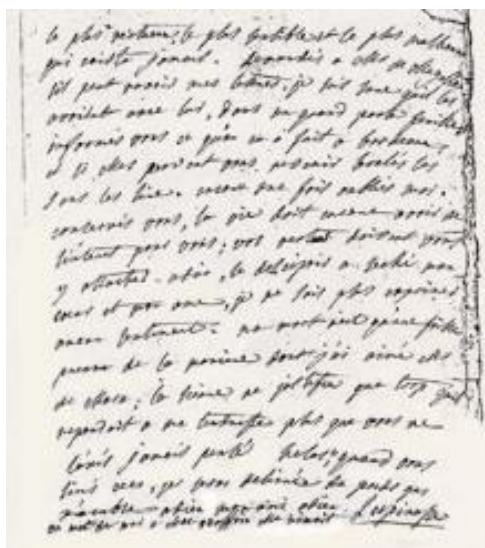 le plus vertueux, le plus sensible et le plus malheureux
qui exista jamais. demandés a mr de magallon
s'il peut avoir mes lettres, je suis sure que les
avoit avec lui, dans un grand porte feuille
informés vous ce qu'on en a fait a bordeaux,
et si elles peuvent vous revenir brulés les
sans les lire. encore une fois oubliés moi.
conservés vous, la vie doit encore avoir de
l'interest pour vous; vos vertus doivent vous
y attacher. adieu, le desespoir a seché mon
coeur et mon ame, je ne sais plus exprimer
aucun sentiment. ma mort n'est qu'une foible
preuve de la maniere dont j'ai aimé mr
de mora; la sienne ne justifie que trop qu'il
repondoit a ma tendresse plus que vous ne
l'avés jamais pensé helas! quand vous
lirés ceci, je serai delivrée du poids qui
m'accable. adieu mon ami, adieu. Lespinasse